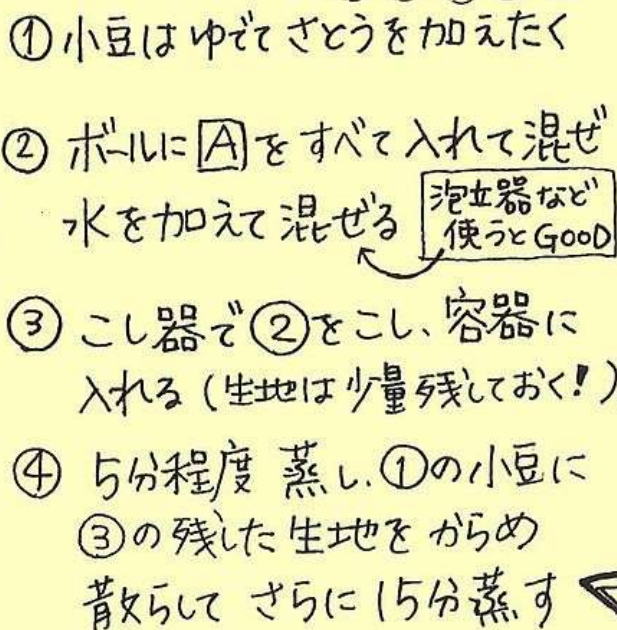 ①小豆はゆでてさとうを加えたく
②ボールにAをすべて入れて混ぜ
水を加えて混ぜる
泡立器など
使うとGOOD
③こし器で②をこし、容器に
入れる(生地は少量残しておく!)
④5分程度 蒸し、①の小豆に
③の残した生地をからめ
散らして さらに15分蒸す